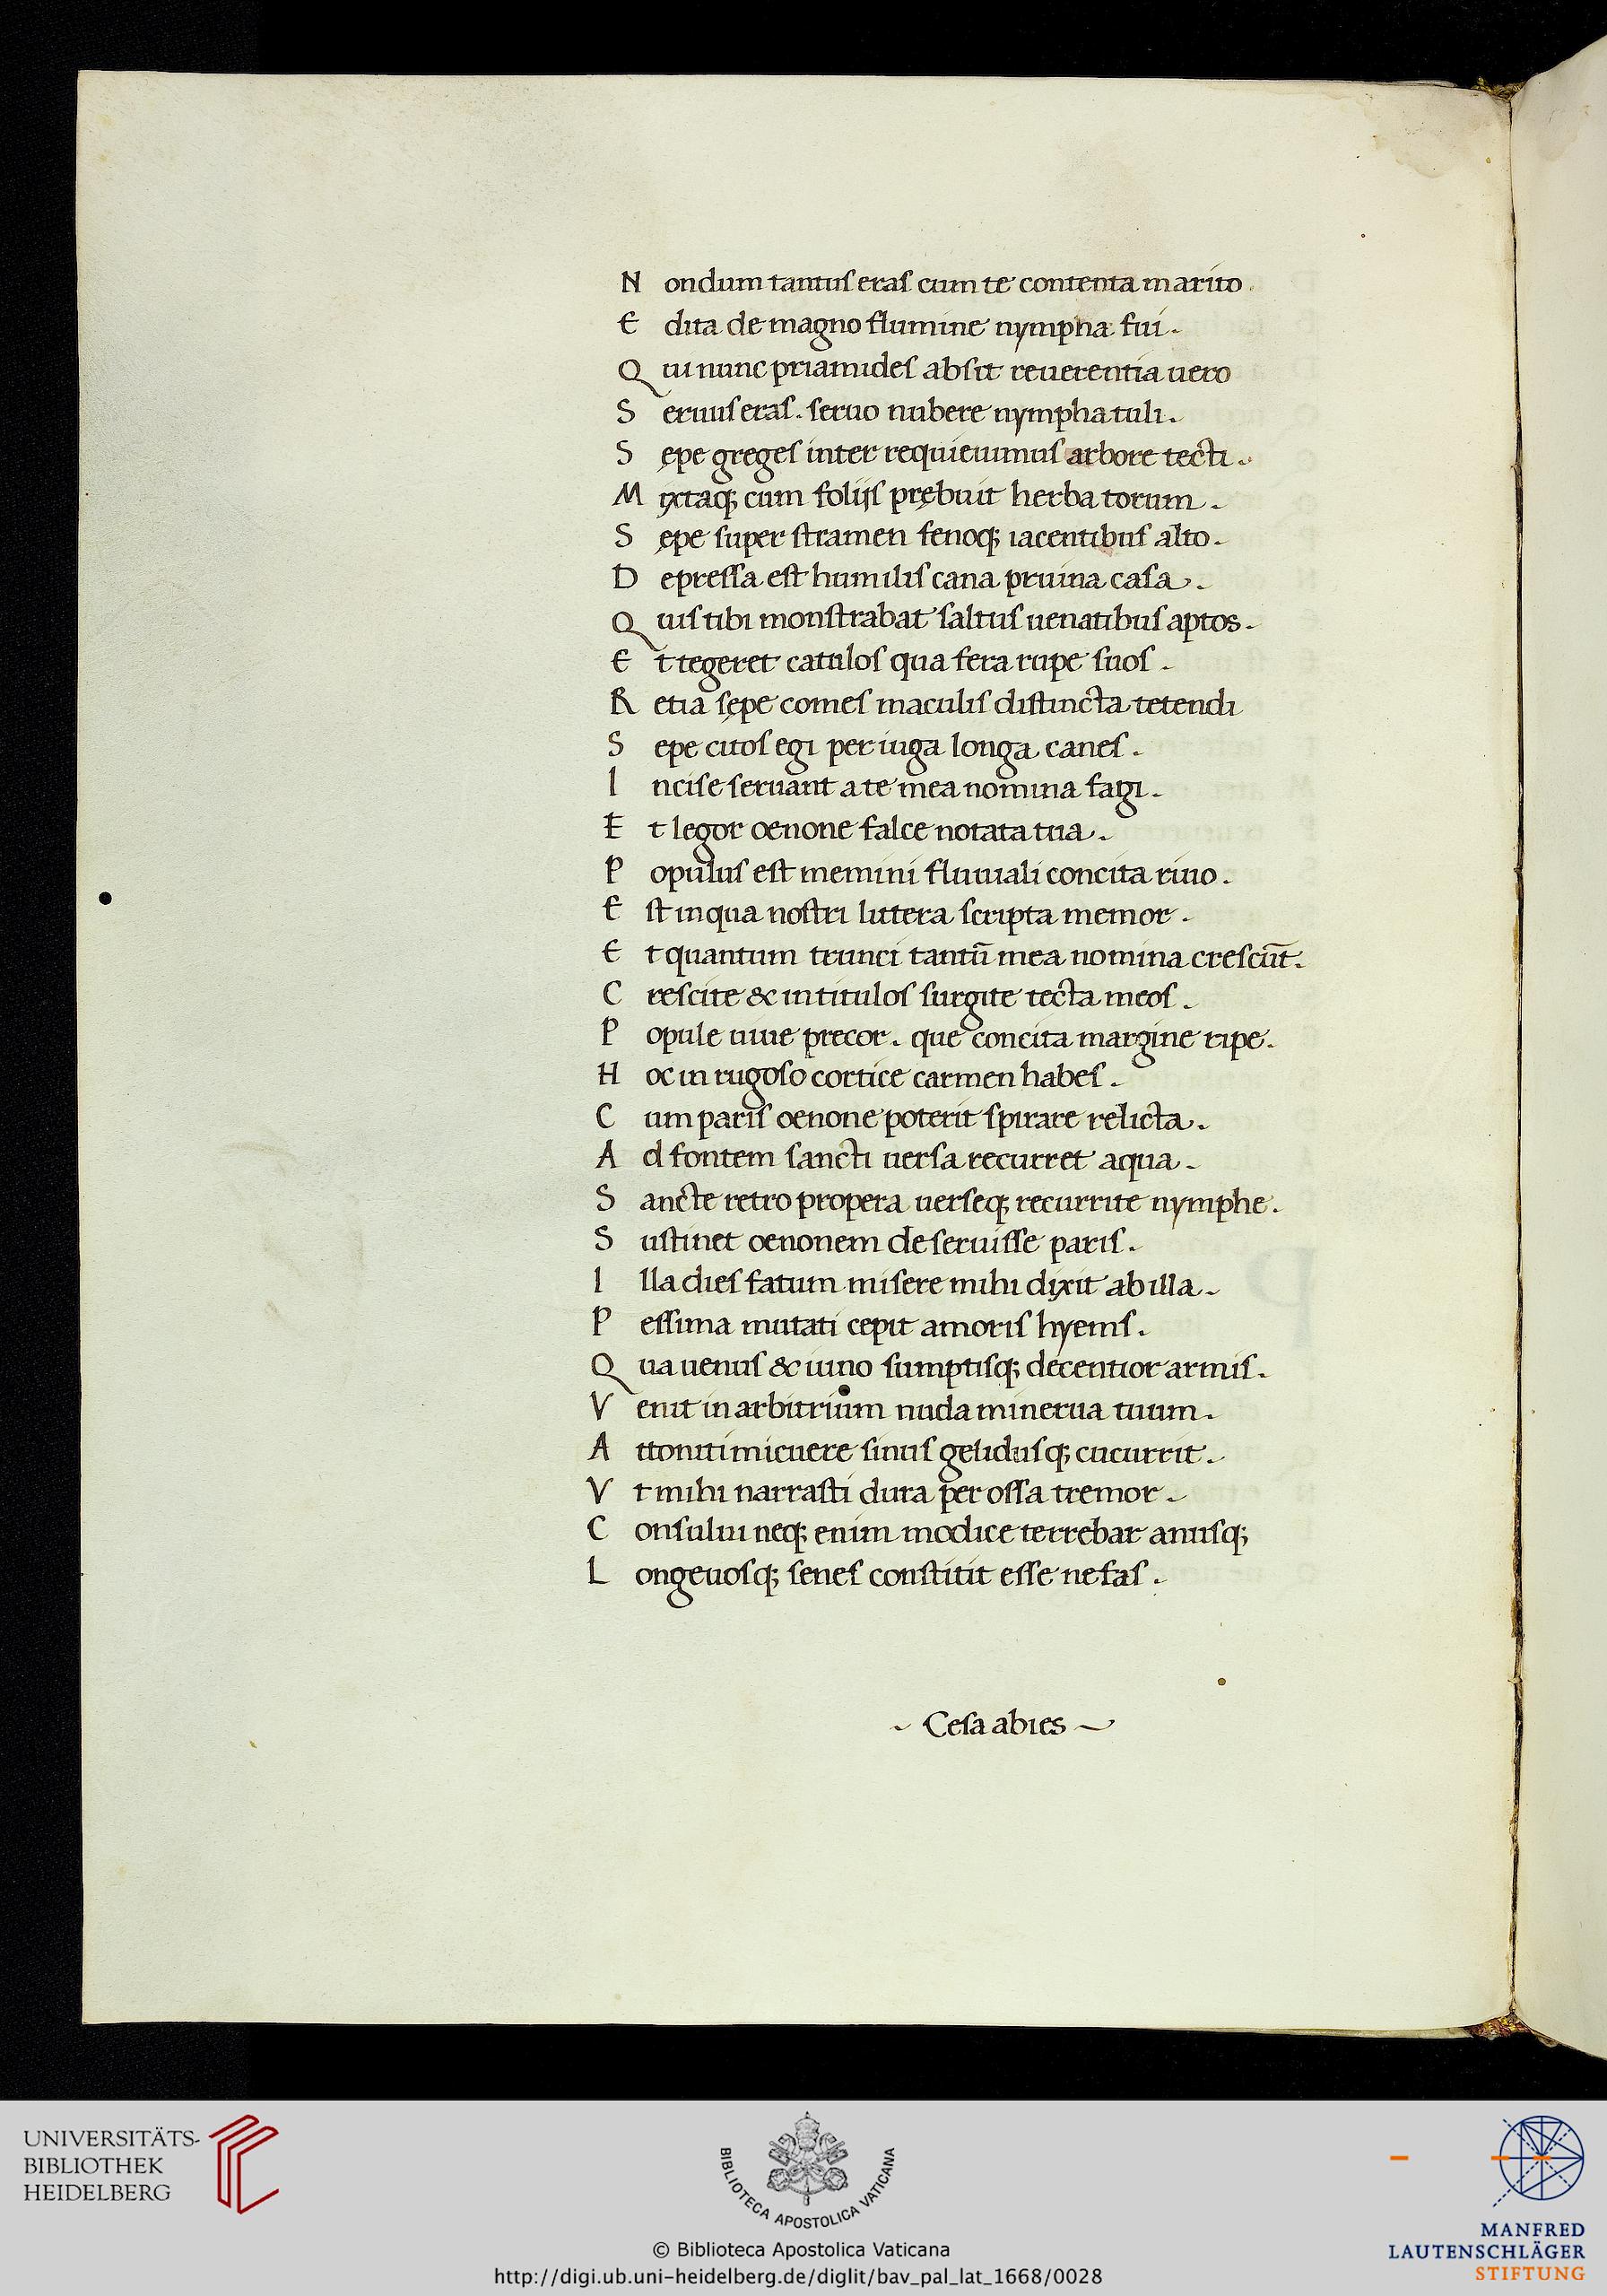 N ondum tantus eras cum te contenta marito.
E dita de magno flumine nympha fui.
Q ui nunc priamides absit reuerentia uero
S eruus eras. seruo nubere nympha tuli.
S ępe greges inter requieuimus arbore tecti.
M ixtaq; cum folijs prębuit herba torum.
S ępe super stramen fenoq; iacentibus alto.
D epressa est humilis cana pruina casa.
Q uis tibi monstrabat saltus uenatibus aptos.
E t tegeret catulos qua fera rupe suos.
R etia sępe comes maculis distincta tetendi
S epe citos egi per iuga longa canes.
I ncise seruant a te mea nomina fagi.
E t legor oenone falce notata tua.
P opulus est memini fluuiali concita riuo.
E st in qua nostri littera scripta memor.
E t quantum trunci tantū mea nomina crescūt.
C rescite & in titulos surgite tecta meos.
P opule uiue precor. que concita margine ripe.
H oc in rugoso cortice carmen habes.
C um paris oenone poterit spirare relicta.
A d fontem sancti uersa recurret aqua.
S ancte retro propera uerseq; recurrite nymphe.
S ustinet oenonem deseruisse paris.
I lla dies fatum misere mihi dixit ab illa.
P essima mutati cepit amoris hyems.
Q ua uenus & iuno sumptisq; decentior armis.
V enit in arbitrium nuda minerua tuum.
A ttoniti micuere sinus gelidusq; cucurrit.
V t mihi narrasti dura per ossa tremor.
C onsului neq; enim modice terrebar anusq;
L ongeuosq; senes constitit esse nefas.
~ Cesa abies ~
UNIVERSITÄTS-
BIBLIOTHEK
HEIDELBERG
BIBLIOTECA APOSTOLICA VATICANA
© Biblioteca Apostolica Vaticana
http://digi.ub.uni-heidelberg.de/diglit/bav_pal_lat_1668/0028
MANFRED
LAUTENSCHLÄGER
STIFTUNG